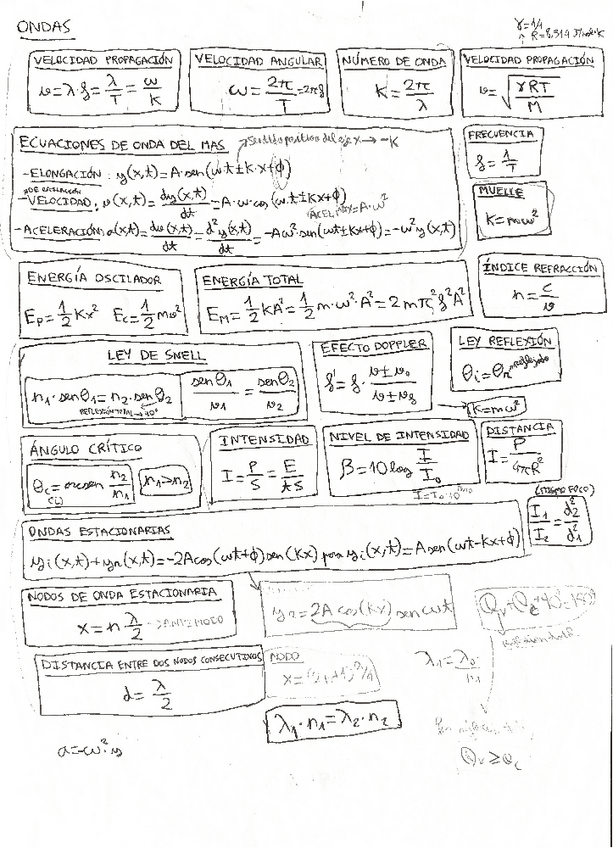 ONDAS
γ=1/4
R=8,314 J/mol·K
VELOCIDAD PROPAGACIÓN
v=λ·f=λ/T=ω/K
VELOCIDAD ANGULAR
ω=2π/T=2πf
NÚMERO DE ONDA
K=2π/λ
VELOCIDAD PROPAGACIÓN
v=√(γRT/M)
ECUACIONES DE ONDA DEL MAS
Sentido positivo del eje x → -K
-ELONGACIÓN: y(x,t)=A·sen(ωt±K·x+ϕ)
-VELOCIDAD: v(x,t)=dy(x,t)/dt=A·ω·cos(ωt±Kx+ϕ)
=A·ω²
-ACELERACIÓN: a(x,t)=dv(x,t)/dt=d²y(x,t)/dt=-Aω²·sen(ωt±Kx+ϕ)=-ω²y(x,t)
FRECUENCIA
f=1/T
MUELLE
K=mω²
ENERGÍA OSCILADOR
Ep=1/2Kx² Ec=1/2mv²
ENERGÍA TOTAL
EM=1/2KA²=1/2m·ω²·A²=2mπ²f²A²
ÍNDICE REFRACCIÓN
n=c/v
LEY DE SNELL
n1·senθ1=n2·senθ2
REFLEXIÓN TOTAL→90°
senθ1/v1=senθ2/v2
EFECTO DOPPLER
f'=f·(v±v0)/(v±vf)
LEY REFLEXIÓN
θi=θr→reflejado
K=mω²
ÁNGULO CRÍTICO
θc=arcsen n2/n1
(L)
n1>n2
INTENSIDAD
I=P/S=E/tS
NIVEL DE INTENSIDAD
β=10log I/I0
DISTANCIA
I=P/4πR²
(MISMO FOCO)
I1/I2=d2²/d1²
ONDAS ESTACIONARIAS
yi(x,t)+yr(x,t)=-2Acos(ωt+ϕ)sen(Kx) para yi(x,t)=Asen(ωt-Kx+ϕ)
NODOS DE ONDA ESTACIONARIA
x=n λ/2
yr=2A cos(Kx) sen ωt
DISTANCIA ENTRE DOS NODOS CONSECUTIVOS
d=λ/2
NODO
λ1=λ0/n1
λ1·n1=λ2·n2
a=-ω²·y